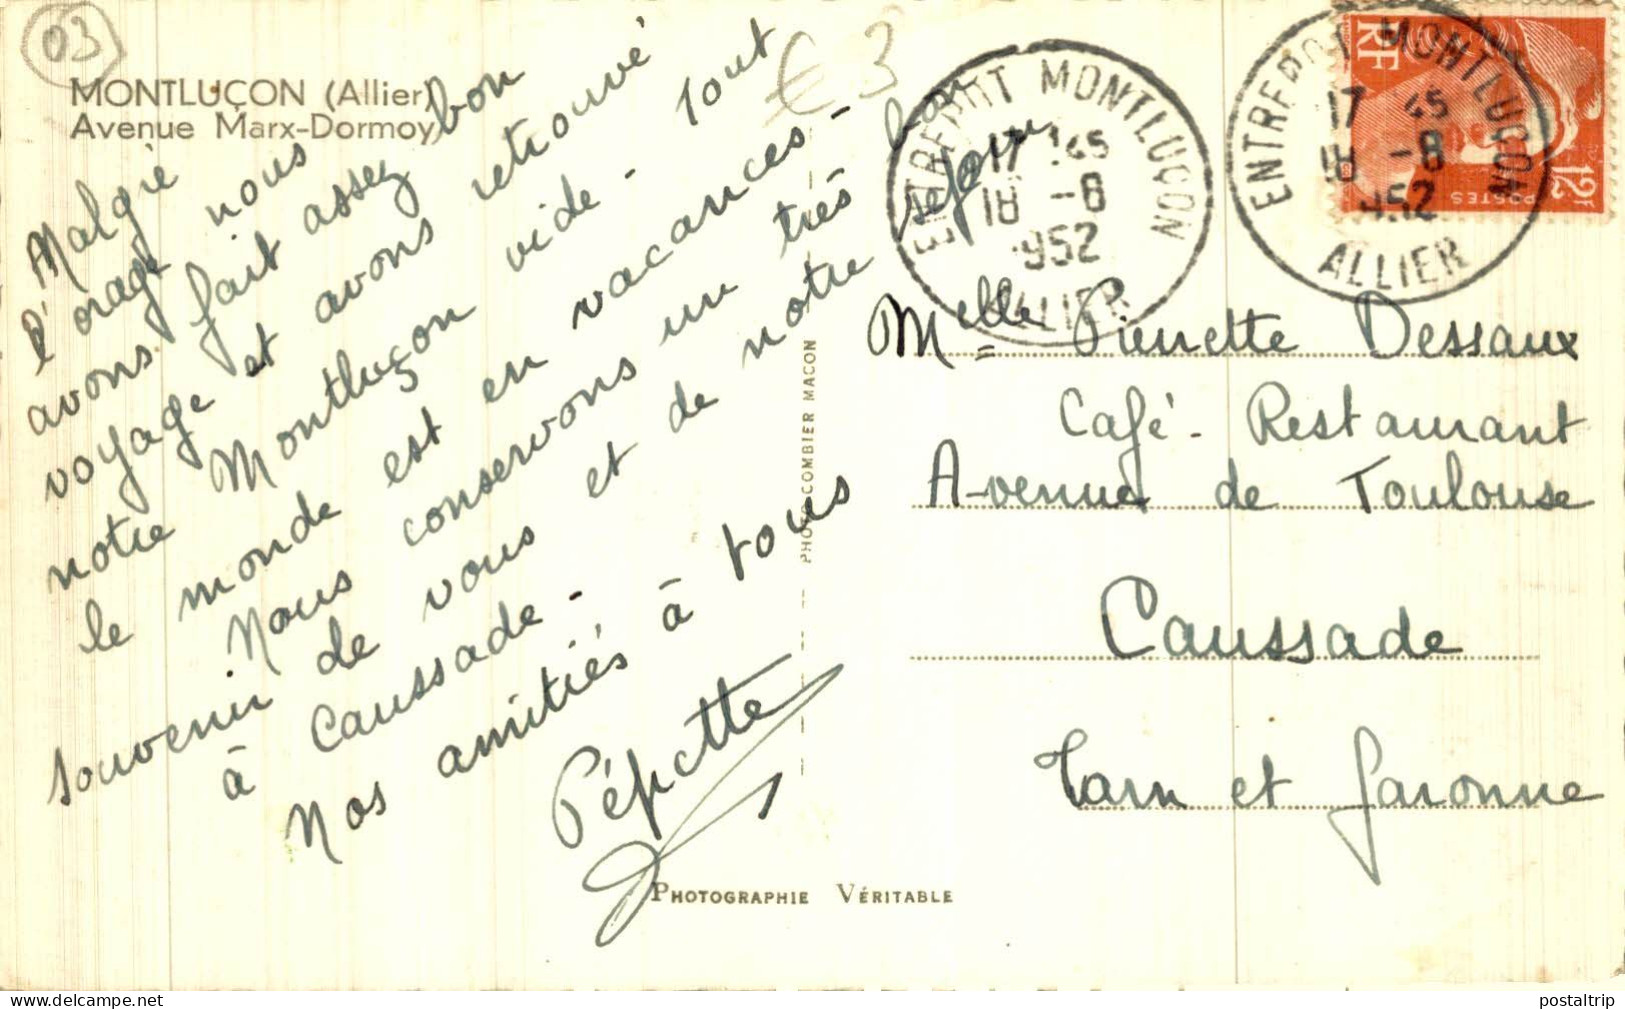 03
€ 3
MONTLUÇON (Allier)
Avenue Marx-Dormoy
Malgré
l'orage nous
avons fait assez bon
voyage et avons retrouvé
notre Montluçon vide - Tout
le monde est en vacances -
Nous conservons un très bon
souvenir de vous et de notre séjour
à Caussade -
Nos amitiés à tous
Pépette
PHOTOGRAPHIE VÉRITABLE
PHOT. COMBIER MACON
ENTREPOT MONTLUÇON
17 45
18 -8
952
ALLIER
ENTREPOT MONTLUÇON
17 45
18 -8
952
ALLIER
RF
12F
POSTES
Melle Pierrette Dessaux
Café - Restaurant
Avenue de Toulouse
Caussade
Tarn et Garonne
postaltrip